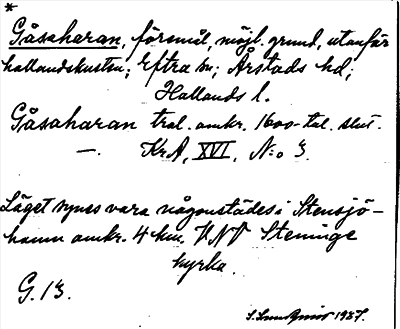 *
Gåsaharan, försmål, möjl. grund, utanför
hallandskusten; Eftra sn; Årstads hd;
Hallands l.
Gåsaharan trol. omkr. 1600-tal. slut.
—. KrA, XVI, N:o 3.
Läget synes vara någonstädes i Stensjö-
hamn omkr. 4 km. VNV Steninge
kyrka.
G. 13.
1937.